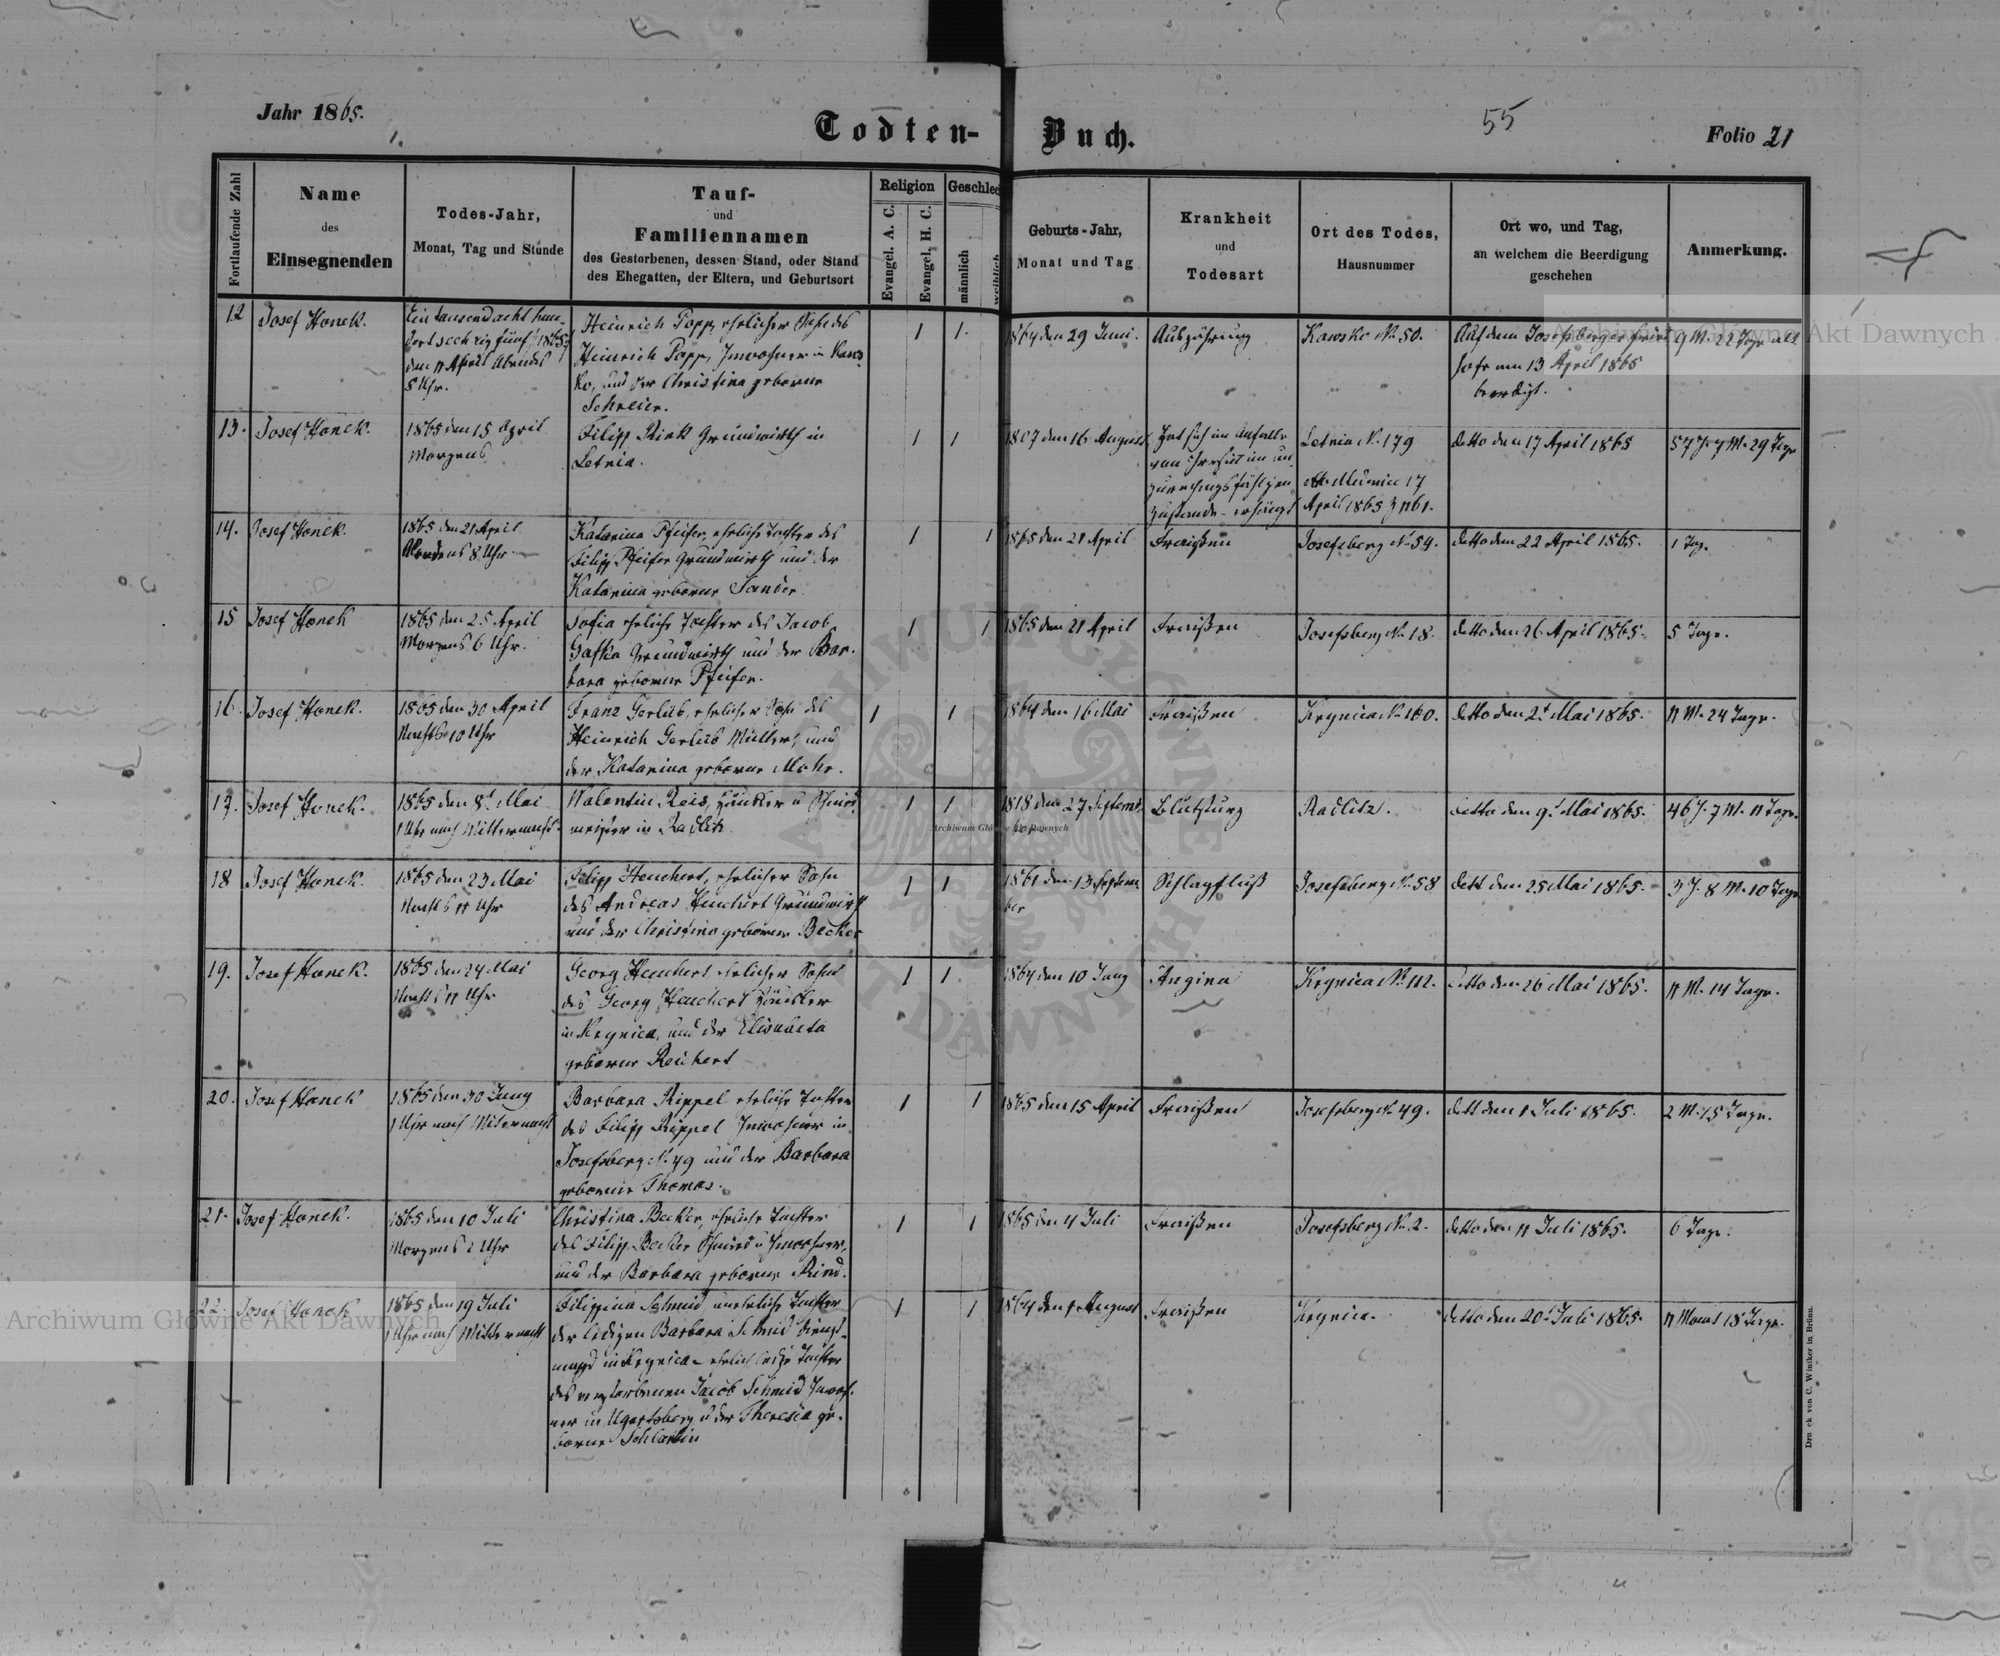 Jahr 1865.
Todten-Buch.
55
Folio 21
Fortlaufende Zahl
Name
des
Einsegnenden
Todes-Jahr,
Monat, Tag und Stunde
Tauf-
und
Familiennamen
des Gestorbenen, dessen Stand, oder Stand
des Ehegatten, der Eltern, und Geburtsort
Religion
Evangel. A. C.
Evangel. H. C.
Geschlec
männlich
weiblich
Geburts-Jahr,
Monat und Tag
Krankheit
und
Todesart
Ort des Todes,
Hausnummer
Ort wo, und Tag,
an welchem die Beerdigung
geschehen
Anmerkung.
12
Josef Honek.
Ein tausend acht hun-
dert sechzig fünf 1865
den 11 April Abends
8 Uhr.
Heinrich Popp, ehelicher Sohn des
Heinrich Popp, Inwohner in Kaws-
ko, und der Christina geborne
Schreier.
1
1.
1864 den 29 Juni.
Auszährung
Kawsko N. 50.
Auf dem Josefsberger Fried
hofe am 13 April 1865
beerdigt.
9 M. 22 Tage alt
13.
Josef Honek.
1865 den 15 April
Morgens
Filipp Rink Grundwirth in
Letnia.
1
1
1807 den 16 August
Hat sich im Anfalle
von Irrsinn im un
zurechnungsfähigen
Zustande - erhängt
Letnia N. 179
17
April 1865 Z 1161.
detto den 17 April 1865
57 J. 7 M. 29 Tage
14.
Josef Honek.
1865 den 21 April
Abends 8 Uhr.
Katarina Pfeifer, eheliche Tochter des
Filipp Pfeifer Grundwirth und der
Katarina geborne Sander.
1
1
1865 den 21 April
Fraißen
Josefsberg No 54.
detto den 22 April 1865.
1 Tag.
15
Josef Honek
1865 den 25 April
Morgens 6 Uhr.
Sofia eheliche Tochter des Jacob
Gafka Grundwirth und der Bar-
bara geborne Pfeifer.
1
1
1865 den 21 April
Fraißen
Josefsberg No 18.
detto den 26 April 1865.
5 Tage.
16.
Josef Honek.
1865 den 30 April
Nachts 10 Uhr
Franz Gerlüb, ehelicher Sohn des
Heinrich Gerlüb Müller, und
der Katarina geborne Mohr.
1
1
1864 den 16 Mai
Fraißen
Krynica N. 160.
detto den 2t Mai 1865.
11 M. 24 Tage.
17.
Josef Honek.
1865 den 8t Mai
1 Uhr nach Mitternacht.
Walentin Reis, Häusler u Schmied
meister in Radlitz
1
1
1818 den 27 Septem
ber
Blutsturz
Radlitz.
detto den 9t Mai 1865.
46 J. 7 M. 11 Tage.
18
Josef Honek.
1865 den 23 Mai
Nachts 11 Uhr
Filipp Heuchert, ehelicher Sohn
des Andreas Heuchert Grundwirth
und der Christina geborne Becker
1
1
1861 den 13 Septem
ber
Schlagfluß
Josefsberg No 58
dett den 25 Mai 1865.
3 J. 8 M. 10 Tage
19.
Josef Honek.
1865 den 24 Mai
Nachts 11 Uhr
Georg Heuchert ehelicher Sohn
des Georg Heuchert Häusler
in Krynica, und der Elisabeta
geborne Reichert
1
1
1864 den 10 Juny
Angina
Krynica No 112.
detto den 26 Mai 1865.
11 M. 14 Tage.
20.
Josef Honek
1865 den 30 Juny
1 Uhr nach Miternacht
Barbara Rippel eheliche Tochter
des Filipp Rippel Inwohner in
Josefsberg N. 49 und der Barbara
geborne Thomas.
1
1
1865 den 15 April
Fraißen
Josefsberg N. 49.
dett den 1 Juli 1865.
2 M. 15 Tage.
21.
Josef Honek.
1865 den 10 Juli
Morgens 2 Uhr
Christina Becker, eheliche Tochter
des Filipp Becker Schmied u Inwohner,
und der Barbara geborne Rind.
1
1
1865 den 4 Juli
Fraißen
Josefsberg No. 2.
detto den 11 Juli 1865.
6 Tage.
22.
Josef Honek
1865 den 19 Juli
1 Uhr nach Mitternacht
Filippina Schmid, uneheliche Tochter
der ledigen Barbara Schmid Dienst-
magd in Krynica - ehelich Tochter
des verstorbenen Jacob Schmid Inwoh-
ner in Ugartsberg u der Theresia ge-
borne
1
1
1864 den 1 August
Fraißen
Krynica.
detto den 20t Juli 1865.
11 Monat 18 Tage.
Druck von C. Winiker in Brünn.
Archiwum Główne Akt Dawnych
Archiwum Główne Akt Dawnych
Archiwum Główne Akt Dawnych
ARCHIWUM GŁÓWNE AKT DAWNYCH